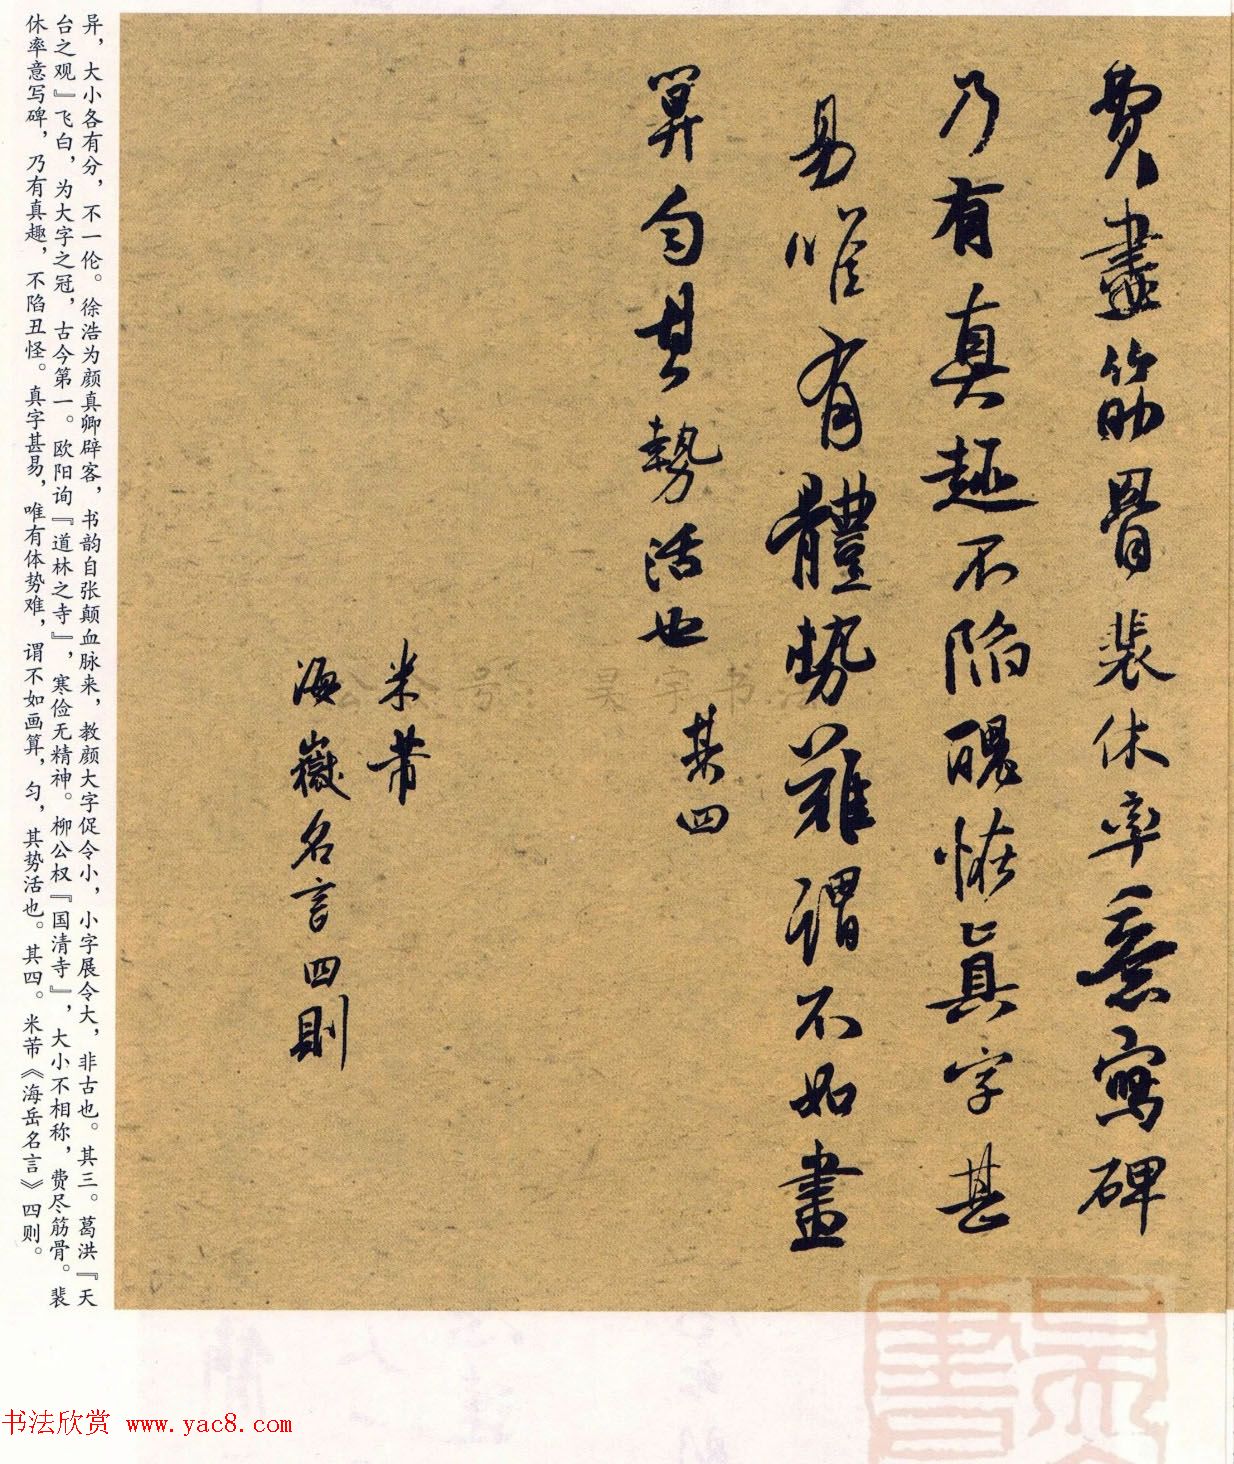 費盡筋骨裴休率意寫碑
乃有真趣不陷醜怪真字甚
易唯有體勢難謂不如畫
筭勻其勢活也
其四
米芾
海嶽名言四則
异，大小各有分，不一伦。徐浩为颜真卿辟客，书韵自张颠血脉来，教颜大字促令小，小字展令大，非古也。其三。葛洪『天
台之观』飞白，为大字之冠，古今第一。欧阳询『道林之寺』，寒俭无精神。柳公权『国清寺』，大小不相称，费尽筋骨。裴
休率意写碑，乃有真趣，不陷丑怪。真字甚易，唯有体势难，谓不如画算，匀，其势活也。其四。米芾《海岳名言》四则。
公众号：昊宇书法
书法欣赏 www.yac8.com